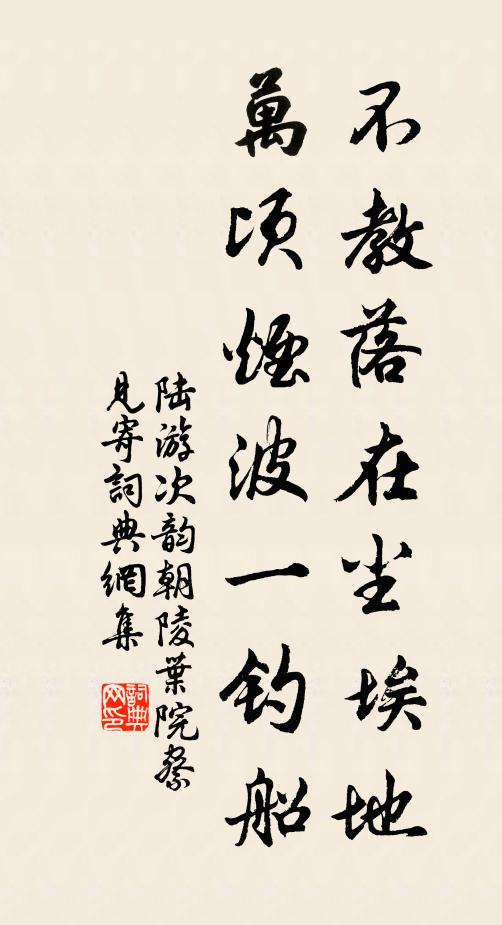 不教落在尘埃地
萬頃煙波一钓船
陆游次韵朝陵葉院察
見寄詞典網集
詞典
网印